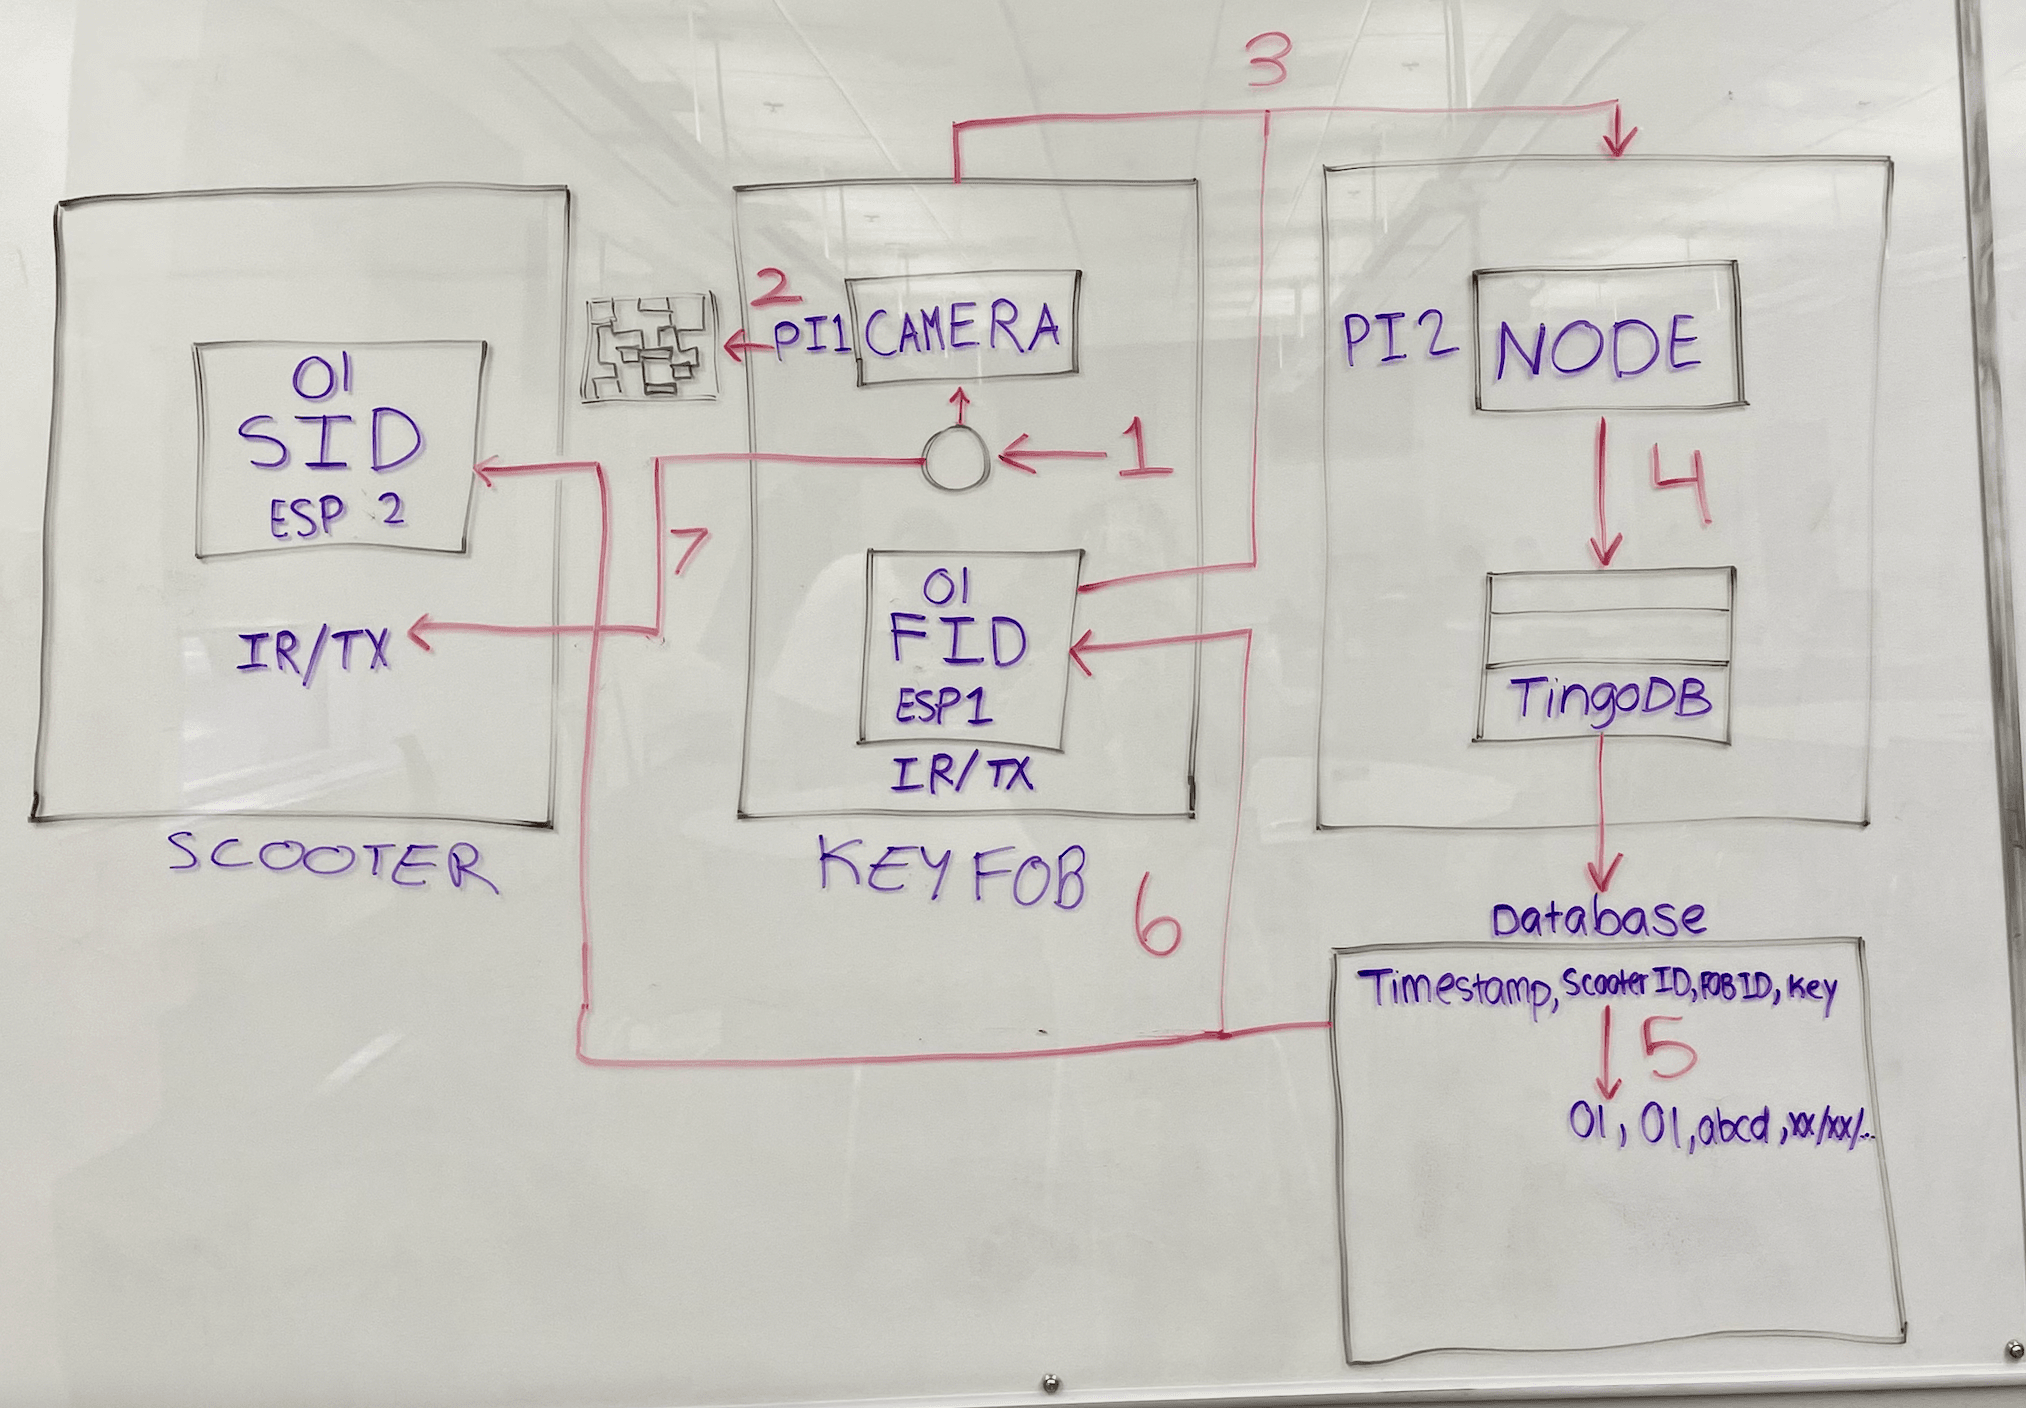 3
2
PI1 CAMERA
PI2 NODE
01
SID
ESP 2
1
4
7
IR/TX
01
FID
ESP1
IR/TX
TingoDB
SCOOTER
KEY FOB
6
Database
Timestamp, Scooter ID, FOB ID, Key
5
01, 01, abcd, xx/xx/..